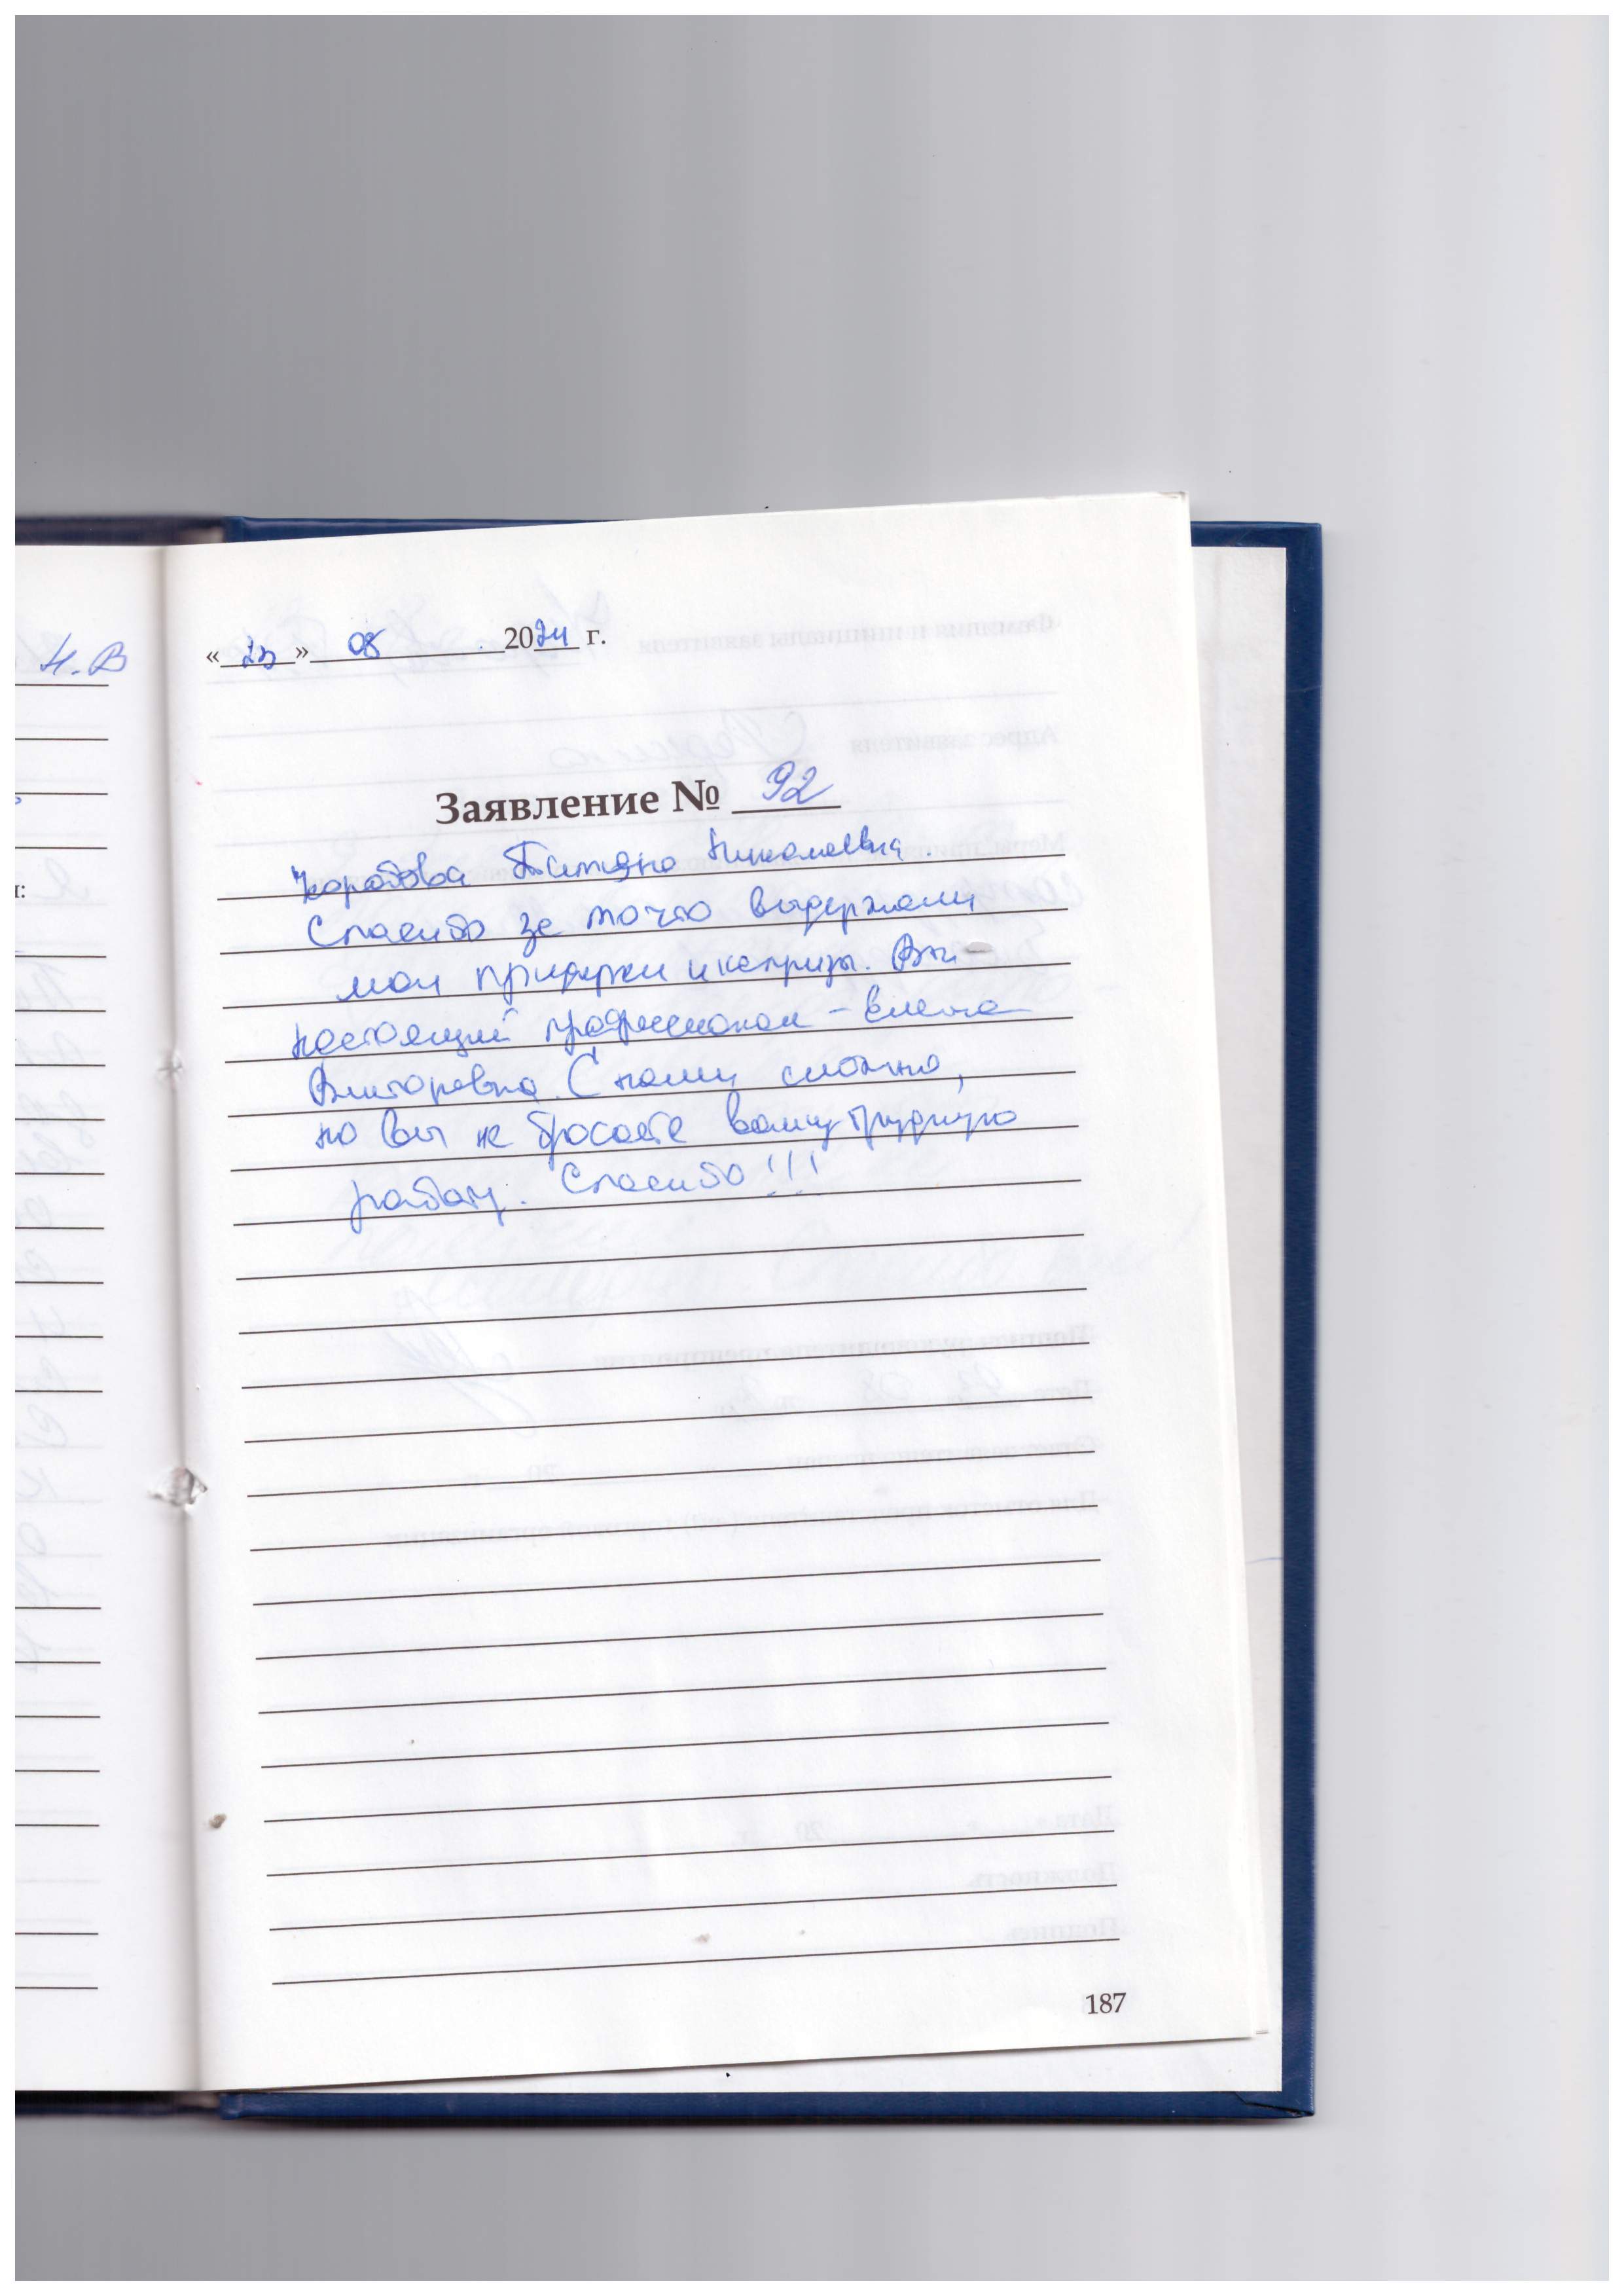 Н.В
« 23 » 08 2024 г.
Заявление № 92
Коробова Татьяна Николаевна.
Спасибо за то что выдержали
мои придирки и капризы. Вы -
настоящий профессионал - Елена
Викторовна. С нами сложно,
но вы не бросаете вашу трудную
работу. Спасибо!!!
187